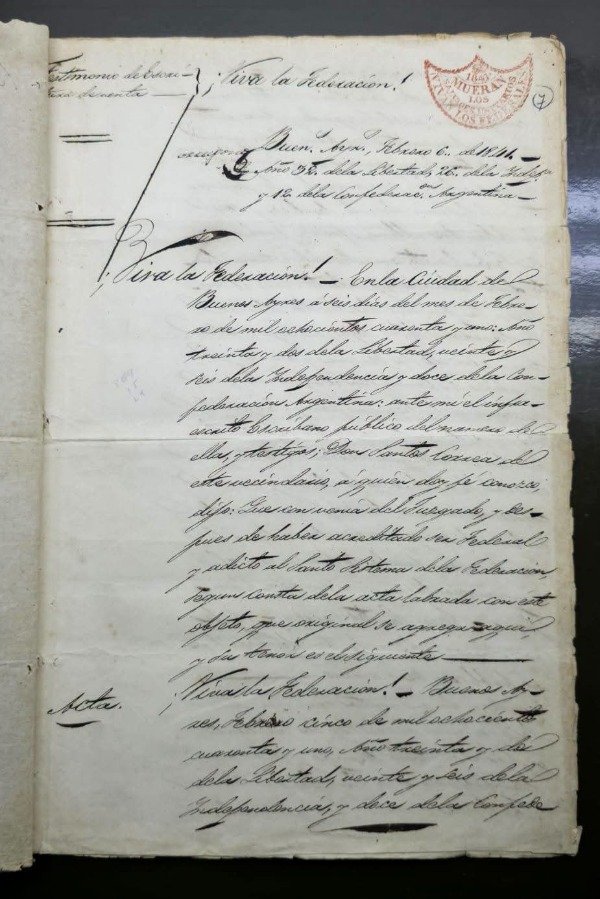 Testimonio de Escri-
tura de venta
¡Viva la Federacion!
1840
MUERAN
LOS
VIVAN LOS FEDERALES
7
Buen.s Ayr.s, Febrero 6. de 1841.
Año 32. de la Libertad, 26. de la Indep.a
y 12. de la Confederac.on Argentina
¡Viva la Federacion! - En la Ciudad de
Buenos Ayres á seis dias del mes de Febre-
ro de mil ochocientos cuarenta y uno: Año
treinta y dos de la Libertad, veinte y
seis de la Independencia, y doce de la Con-
federacion Argentina: ante mi el infra-
escrito Escribano público del número de
ellas, y testigos; Don Santos Correa de
este vecindario, á quien doy fé conozco,
dijo: Que con venia del Juzgado, y des-
pues de haber acreditado ser Federal
y adicto al Santo Sistema de la Federacion,
segun consta de la acta labrada con este
objeto, que original se agrega aqui
y su tenor es el siguiente
Acta.
¡Viva la Federacion! - Buenos Ay-
res, Febrero cinco de mil ochocientos
cuarenta y uno, Año treinta y dos
de la Libertad, veinte y seis de la
Independencia, y doce de la Confede